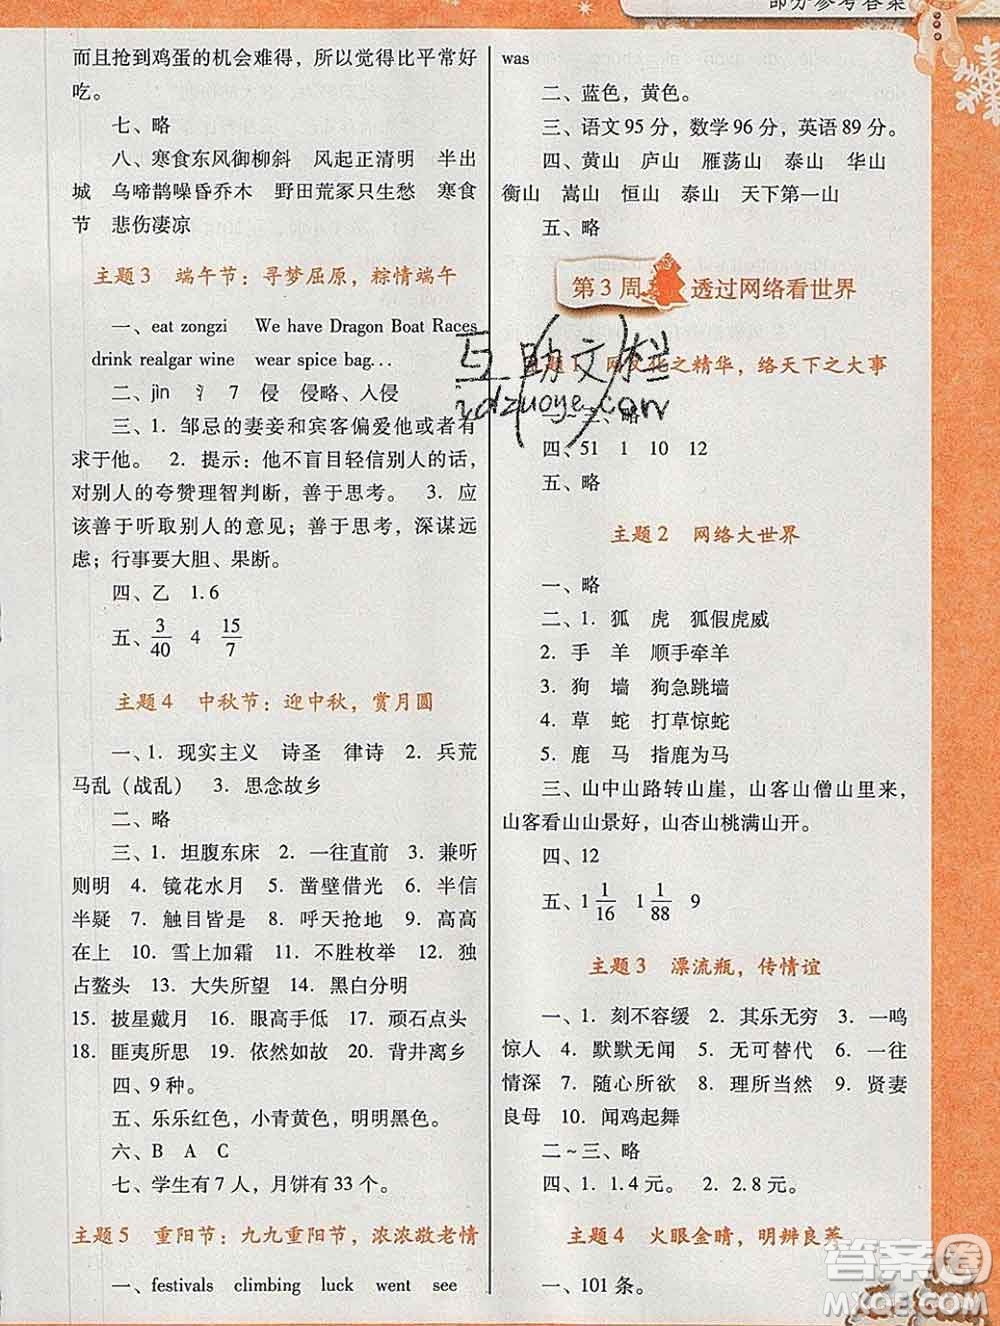 部分参考答案
而且抢到鸡蛋的机会难得，所以觉得比平常好
吃。
七、略
八、寒食东风御柳斜　风起正清明　半出
城　乌啼鹊噪昏乔木　野田荒冢只生愁　寒食
节　悲伤凄凉
主题3　端午节：寻梦屈原，粽情端午
一、eat zongzi　We have Dragon Boat Races
drink realgar wine　wear spice bag...
二、jìn　氵　7　侵　侵略、入侵
三、1. 邹忌的妻妾和宾客偏爱他或者有
求于他。　2. 提示：他不盲目轻信别人的话，
对别人的夸赞理智判断，善于思考。　3. 应
该善于听取别人的意见；善于思考，深谋远
虑；行事要大胆、果断。
四、乙　1.6
五、3/40　4　15/7
主题4　中秋节：迎中秋，赏月圆
一、1. 现实主义　诗圣　律诗　2. 兵荒
马乱（战乱）　3. 思念故乡
二、略
三、1. 坦腹东床　2. 一往直前　3. 兼听
则明　4. 镜花水月　5. 凿壁借光　6. 半信
半疑　7. 触目皆是　8. 呼天抢地　9. 高高
在上　10. 雪上加霜　11. 不胜枚举　12. 独
占鳌头　13. 大失所望　14. 黑白分明
15. 披星戴月　16. 眼高手低　17. 顽石点头
18. 匪夷所思　19. 依然如故　20. 背井离乡
四、9 种。
五、乐乐红色，小青黄色，明明黑色。
六、B　A　C
七、学生有 7 人，月饼有 33 个。
主题5　重阳节：九九重阳节，浓浓敬老情
一、festivals　climbing　luck　went　see
was
二、蓝色，黄色。
三、语文 95 分，数学 96 分，英语 89 分。
四、黄山　庐山　雁荡山　泰山　华山
衡山　嵩山　恒山　泰山　天下第一山
五、略
第 3 周　透过网络看世界
主题1　网文化之精华，络天下之大事
一~三、略
四、51　1　10　12
五、略
主题2　网络大世界
一、略
二、1. 狐　虎　狐假虎威
2. 手　羊　顺手牵羊
3. 狗　墙　狗急跳墙
4. 草　蛇　打草惊蛇
5. 鹿　马　指鹿为马
三、山中山路转山崖，山客山僧山里来，
山客看山山景好，山杏山桃满山开。
四、12
五、1 1/16　1 1/88　9
主题3　漂流瓶，传情谊
一、1. 刻不容缓　2. 其乐无穷　3. 一鸣
惊人　4. 默默无闻　5. 无可替代　6. 一往
情深　7. 随心所欲　8. 理所当然　9. 贤妻
良母　10. 闻鸡起舞
二~三、略
四、1. 1.4 元。　2. 2.8 元。
主题4　火眼金睛，明辨良莠
一、101 条。
互助文档
zdzuoye.com
答案圈
MXQE.COM